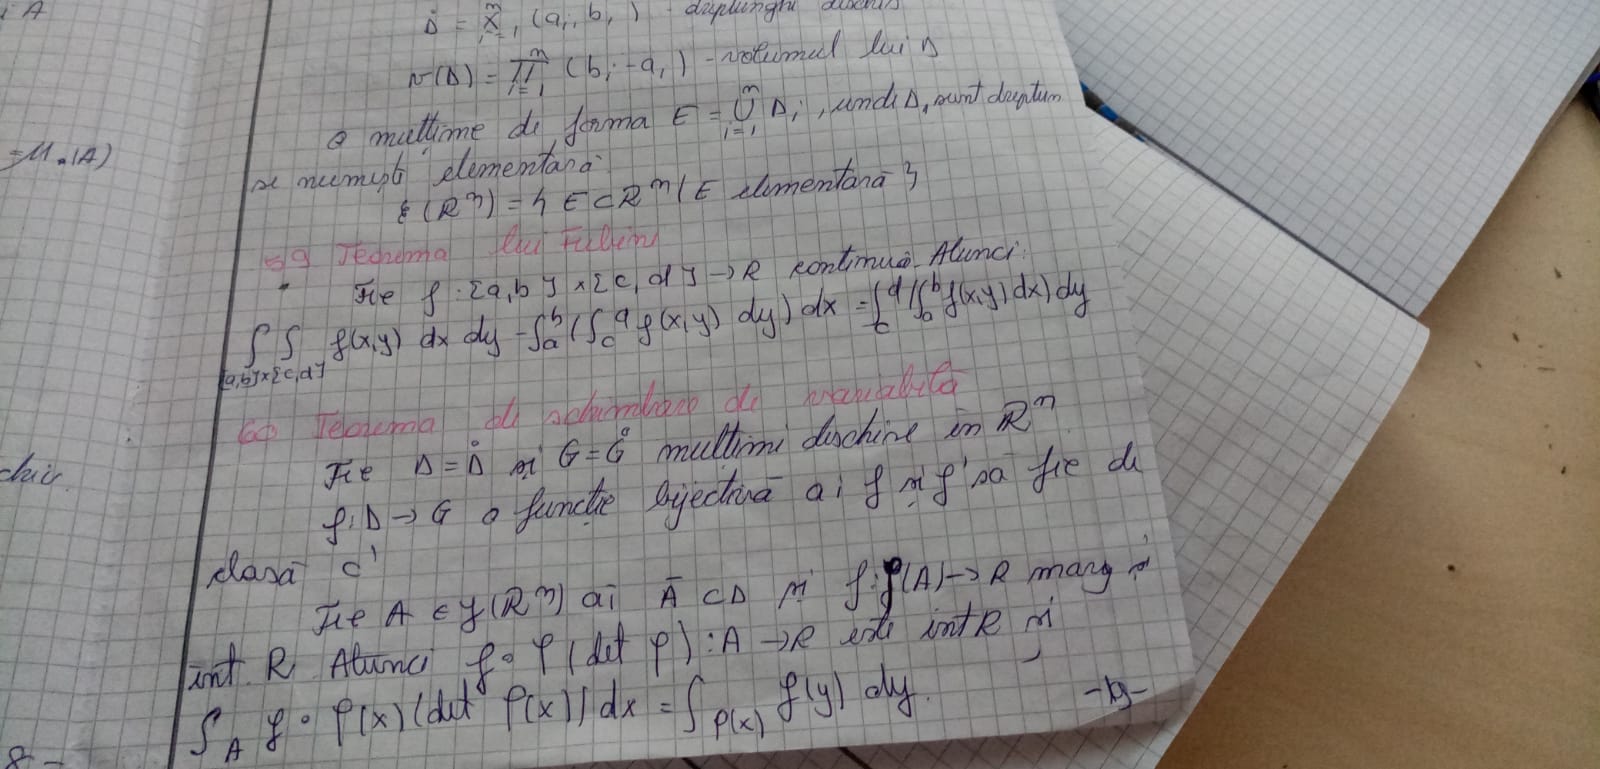 : A
Δ̊ = X (aᵢ, bᵢ) - dreptunghi deschis
v(Δ) = ∏ᵢ₌₁ⁿ (bᵢ - aᵢ) - volumul lui Δ
O multime de forma E = ⋃ᵢ₌₁ⁿ Δᵢ, unde Δᵢ sunt dreptun
=M*(A)
se numește elementară.
ℰ(Rⁿ) = { E ⊂ Rⁿ / E elementară }
59 Teorema lui Fubini
Fie f: [a,b] x [c,d] → R continuă. Atunci:
∫∫ f(x,y) dx dy = ∫ₐᵇ (∫꜀ᵈ f(x,y) dy) dx = ∫꜀ᵈ (∫ₐᵇ f(x,y) dx) dy
[a,b]x[c,d]
60 Teorema de schimbare de variabilă
Fie Δ = Δ̊ și G = G̊ multimi deschise in Rⁿ
f: Δ → G o funcție bijectivă ai f și f' să fie de
clasă C¹
Fie A ∈ J(Rⁿ) ai Ā ⊂ Δ și f: φ(A) → R marg și
int. R. Atunci f∘φ (det φ): A → R este int R și
∫_A f∘φ(x) (det φ(x)) dx = ∫_φ(x) f(y) dy.
-19-
8 -